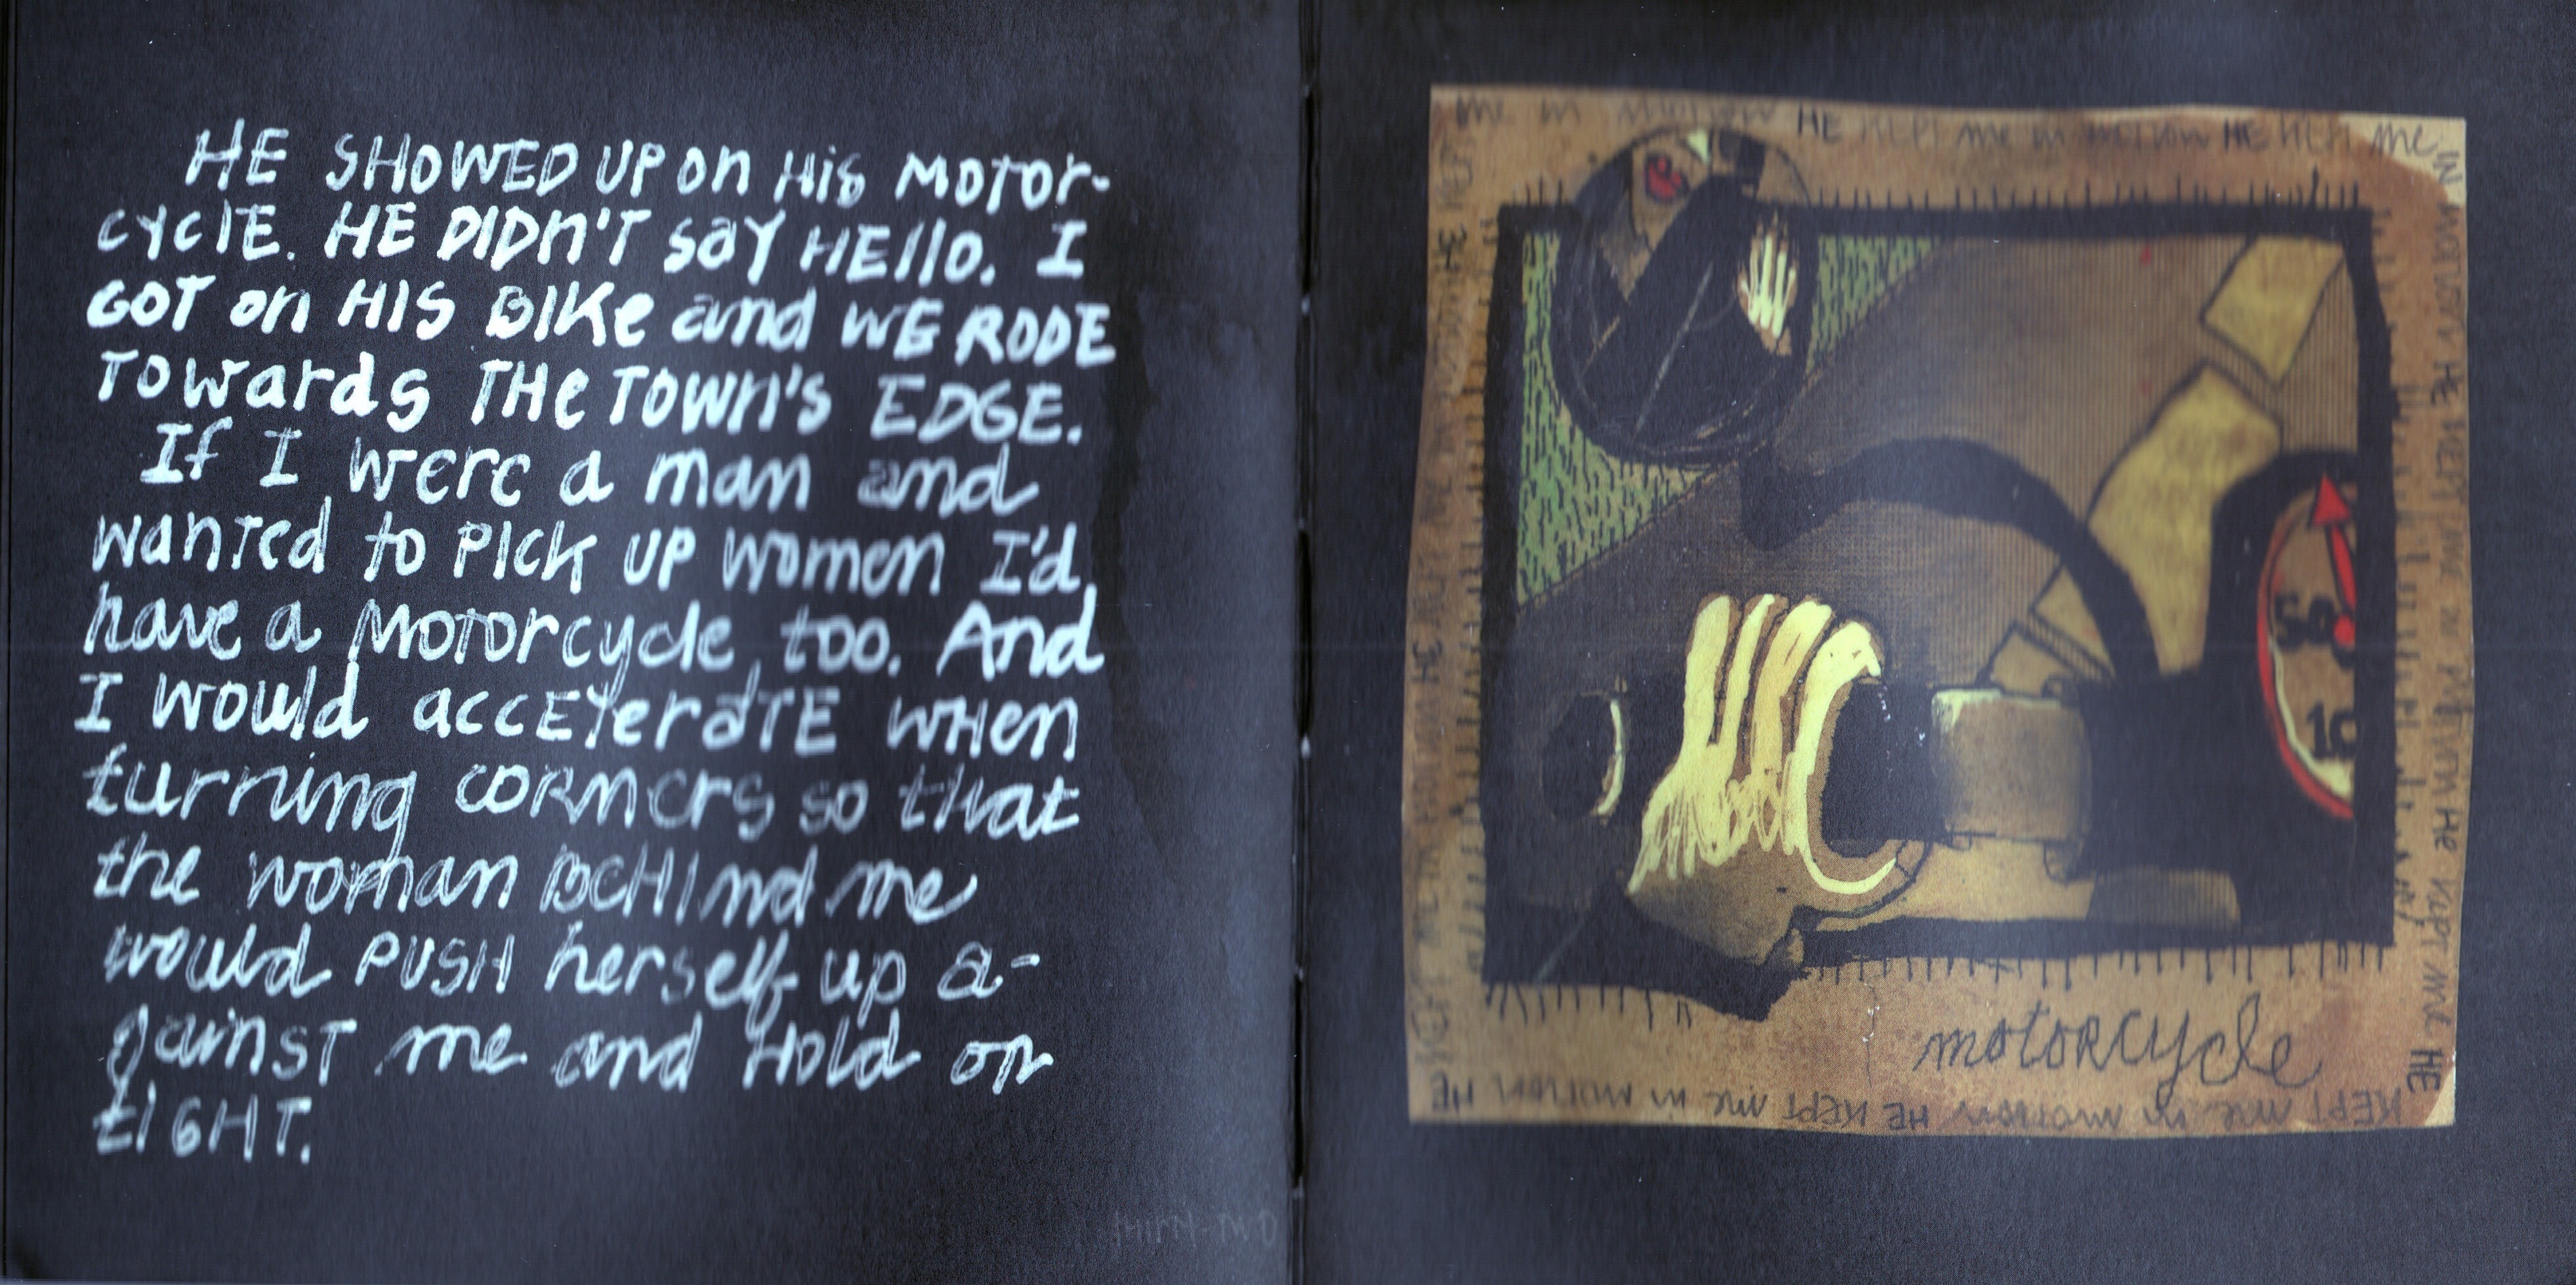 HE SHOWED UP on His MOTOr-
cYclE. HE DIDn'T saY HEllo. I
GOT on HIS BIKe and WE RODE
Towards THe Town's EDGE.
If I were a man and
wanTed to PIck UP women I'd
have a MoTorcycle, too. And
I would accElerATE wHen
turning coRners so that
the woman BeHInd me
would PUSH herself up a-
gainsT me and Hold on
tIGHT.
me in motion HE KEPT me in motion HE KEPT me
IN MOTION HE KEPT me in motion HE KEPT me HE
KEPT me in motion HE KEPT me in motion HE
50
10
motoRcycle